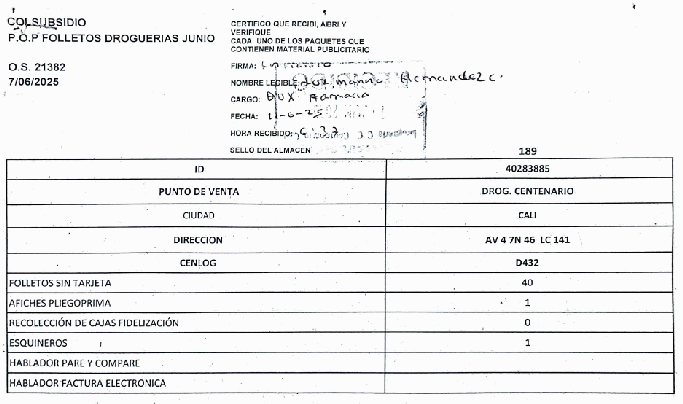 COLSUBSIDIO
P.O.P FOLLETOS DROGUERIAS JUNIO
O.S. 21382
7/06/2025
CERTIFICO QUE RECIBI, ABRI Y
VERIFIQUE
CADA UNO DE LOS PAQUETES QUE
CONTIENEN MATERIAL PUBLICITARIO
FIRMA:
NOMBRE LEGIBLE: Luz Hernandez C.
CARGO: AUX Farmacia
FECHA: 11-6-25
HORA RECIBIDO:
SELLO DEL ALMACEN
189
ID 40283885
PUNTO DE VENTA DROG. CENTENARIO
CIUDAD CALI
DIRECCION AV 4 7N 46 LC 141
CENLOG D432
FOLLETOS SIN TARJETA 40
AFICHES PLIEGOPRIMA 1
RECOLECCIÓN DE CAJAS FIDELIZACIÓN 0
ESQUINEROS 1
HABLADOR PARE Y COMPARE
HABLADOR FACTURA ELECTRONICA